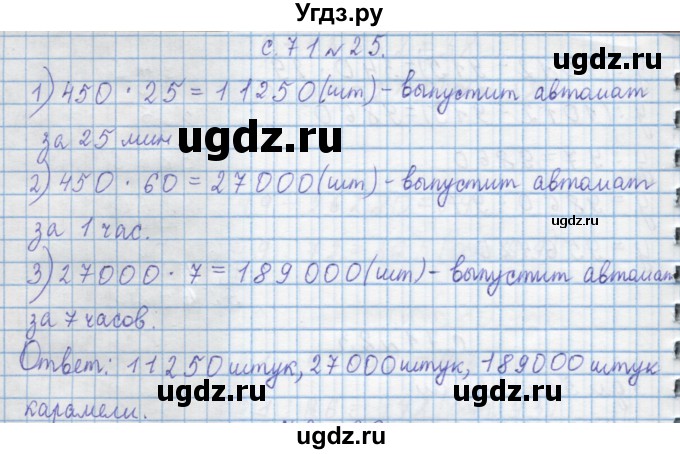 Угдз.ру
с. 71 № 25.
1) 450 · 25 = 11250 (шт) - выпустит автомат
за 25 мин
ugdz.ru
ugdz.ru
2) 450 · 60 = 27000 (шт) - выпустит автомат
ugdz.ru
за 1 час.
3) 27000 · 7 = 189000 (шт) - выпустит автомат
за 7 часов.
ugdz.ru
Ответ: 11250 штук, 27000 штук, 189000 штук
ugdz.ru
ugdz.ru
карамели.
ugdz.ru